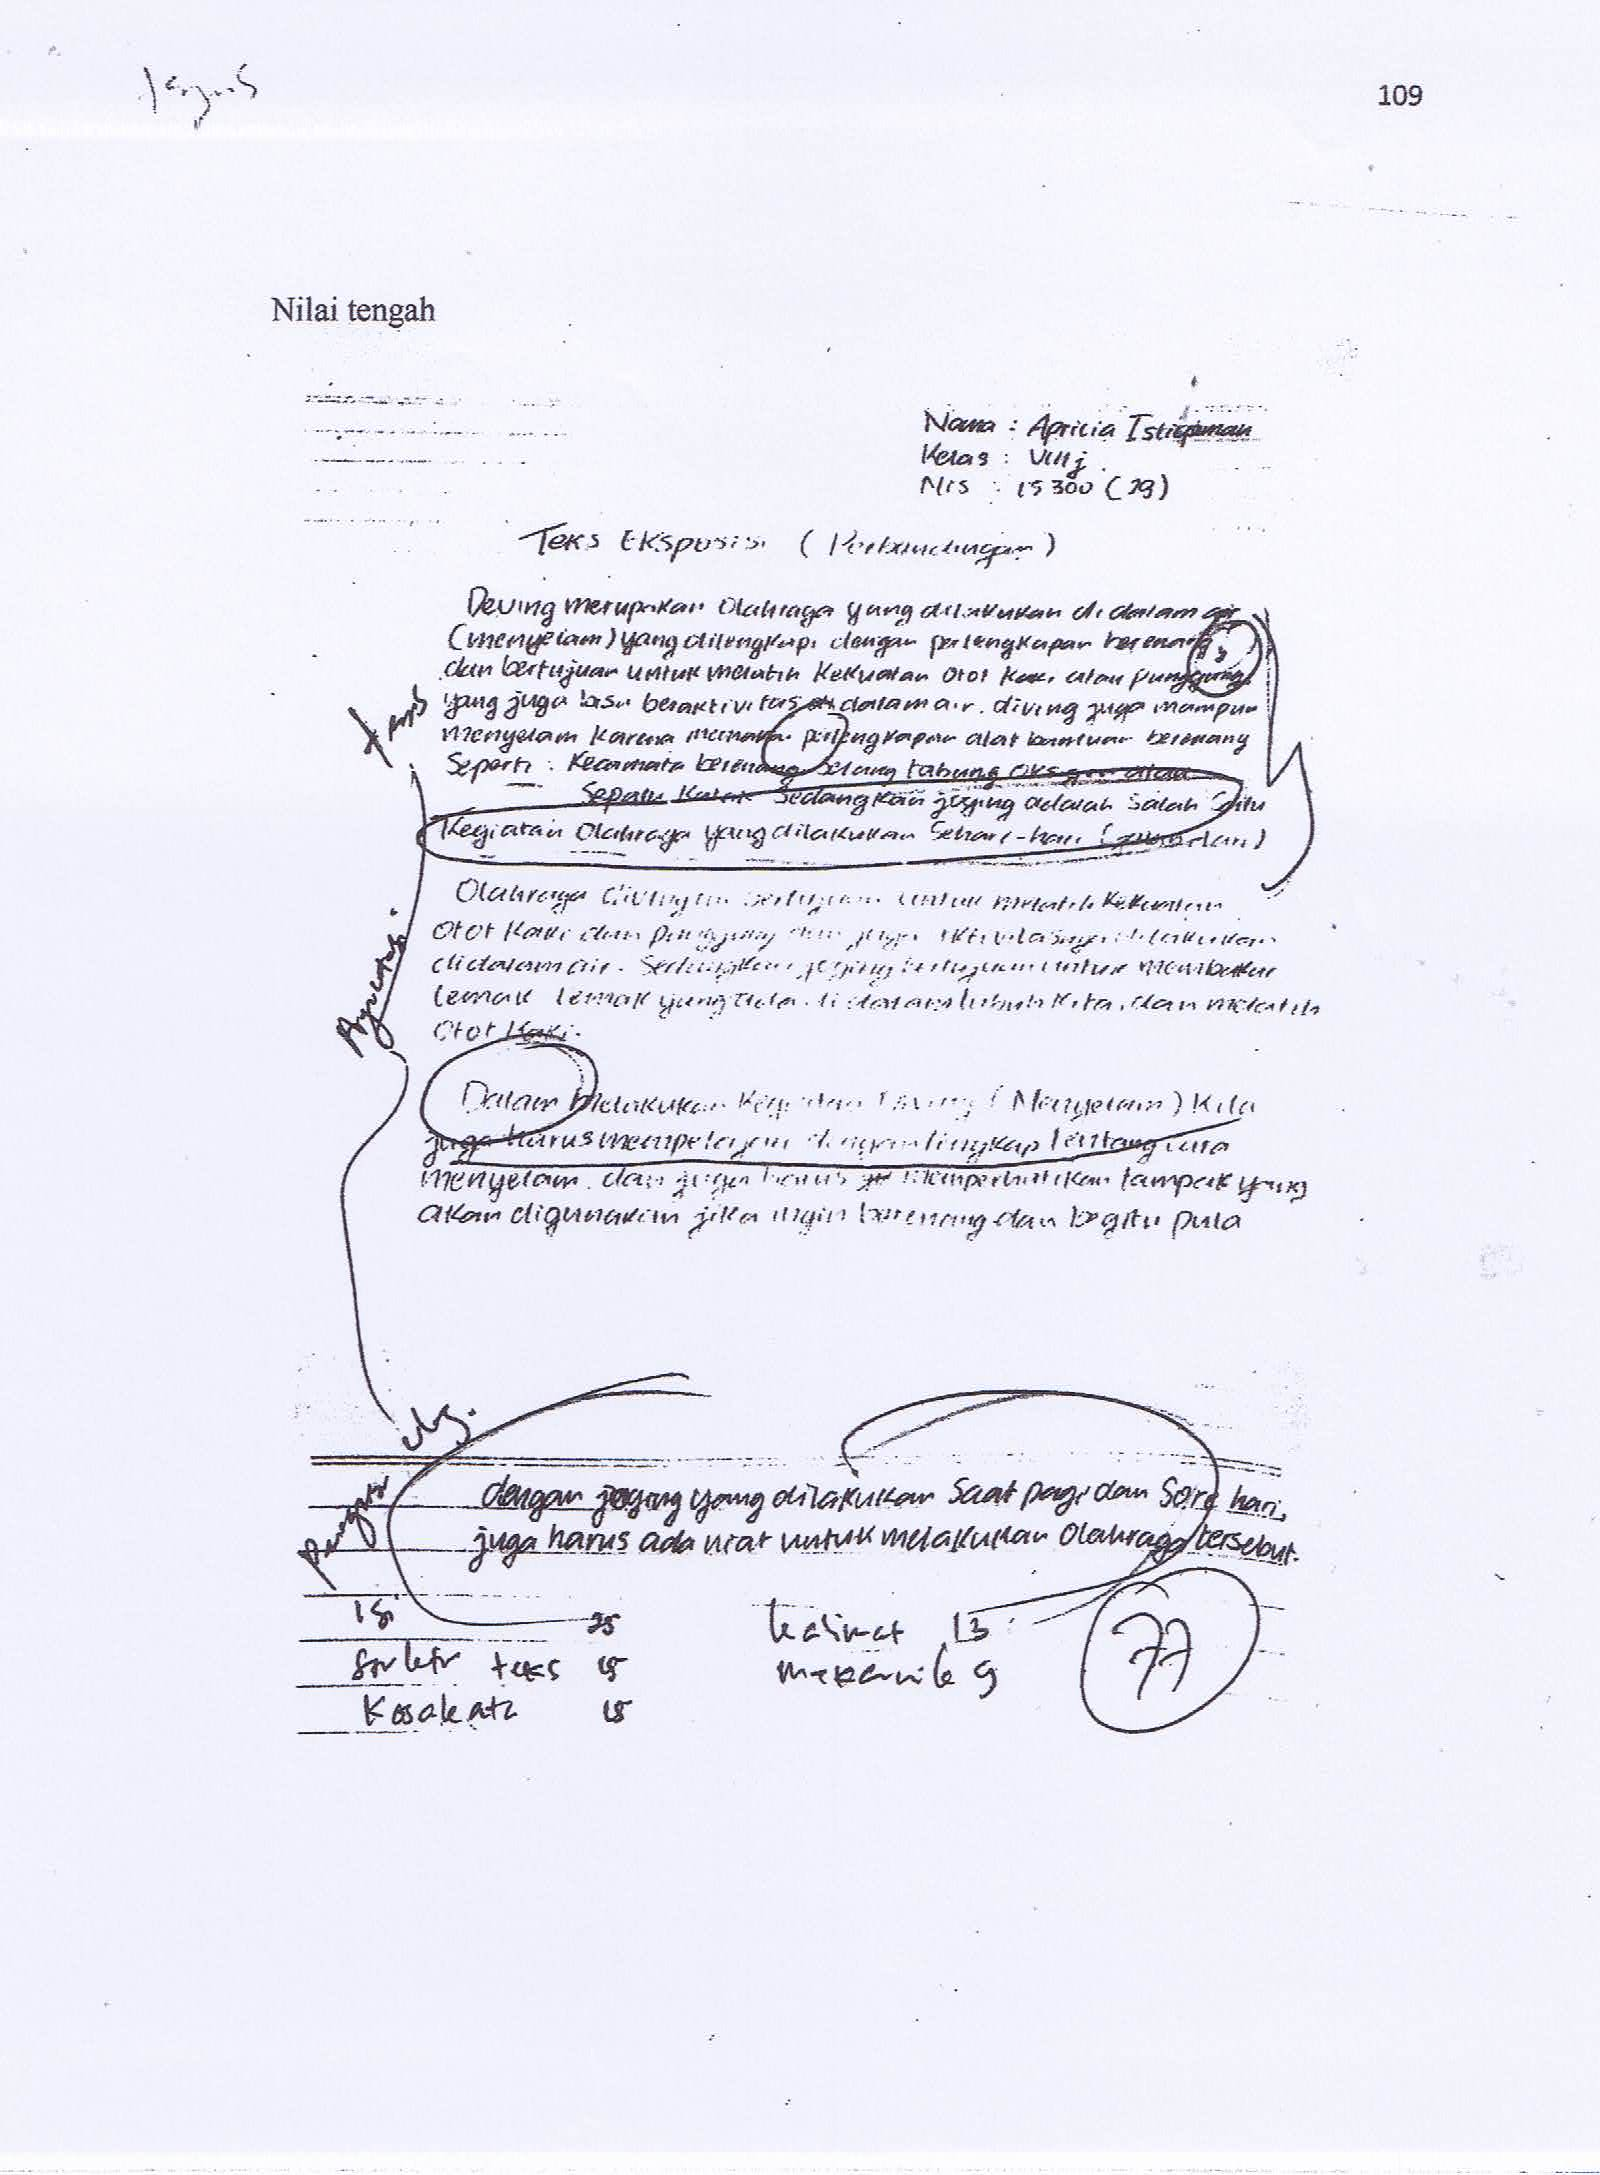 109
Nilai tengah
Nama : Aprilia Istiqomah
Kelas : VIII j
NIS : 15300 (29)
Teks Eksposisi (Perbandingan)
Deving merupakan Olahraga yang dilakukan di dalam air
(menyelam) yang dilengkapi dengan perlengkapan berenang
dan bertujuan untuk melatih kekuatan otot kaki atau punggung
yang juga bisa beraktivitas di dalam air. diving juga mampu
menyelam karena memakai perlengkapan alat bantuan berenang
Seperti : Kacamata berenang Selang tabung oksigen atau
Sepatu Katak Sedangkan joging adalah Salah Satu
Kegiatan Olahraga yang dilakukan Sehari-hari
Olahraga diving ini bertujuan untuk melatih kekuatan
Otot Kaki dan punggung dan juga aktivitasnya dilakukan
didalam air. Sedangkan joging bertujuan untuk membakar
lemak lemak yang ada di dalam tubuh kita, dan melatih
Otot Kaki.
Dalam melakukan Kegiatan Diving (Menyelam) Kita
juga harus mempelajari dengan lengkap tentang cara
menyelam. dan juga harus memperhatikan tampak yang
akan digunakan jika ingin berenang dan begitu pula
dengan joging yang dilakukan Saat pagi dan Sore hari,
juga harus ada niat untuk melakukan Olahraga tersebut.
Isi 25 kalimat 13
Struktur teks 15 mekanik 9
Kosakata 15
77